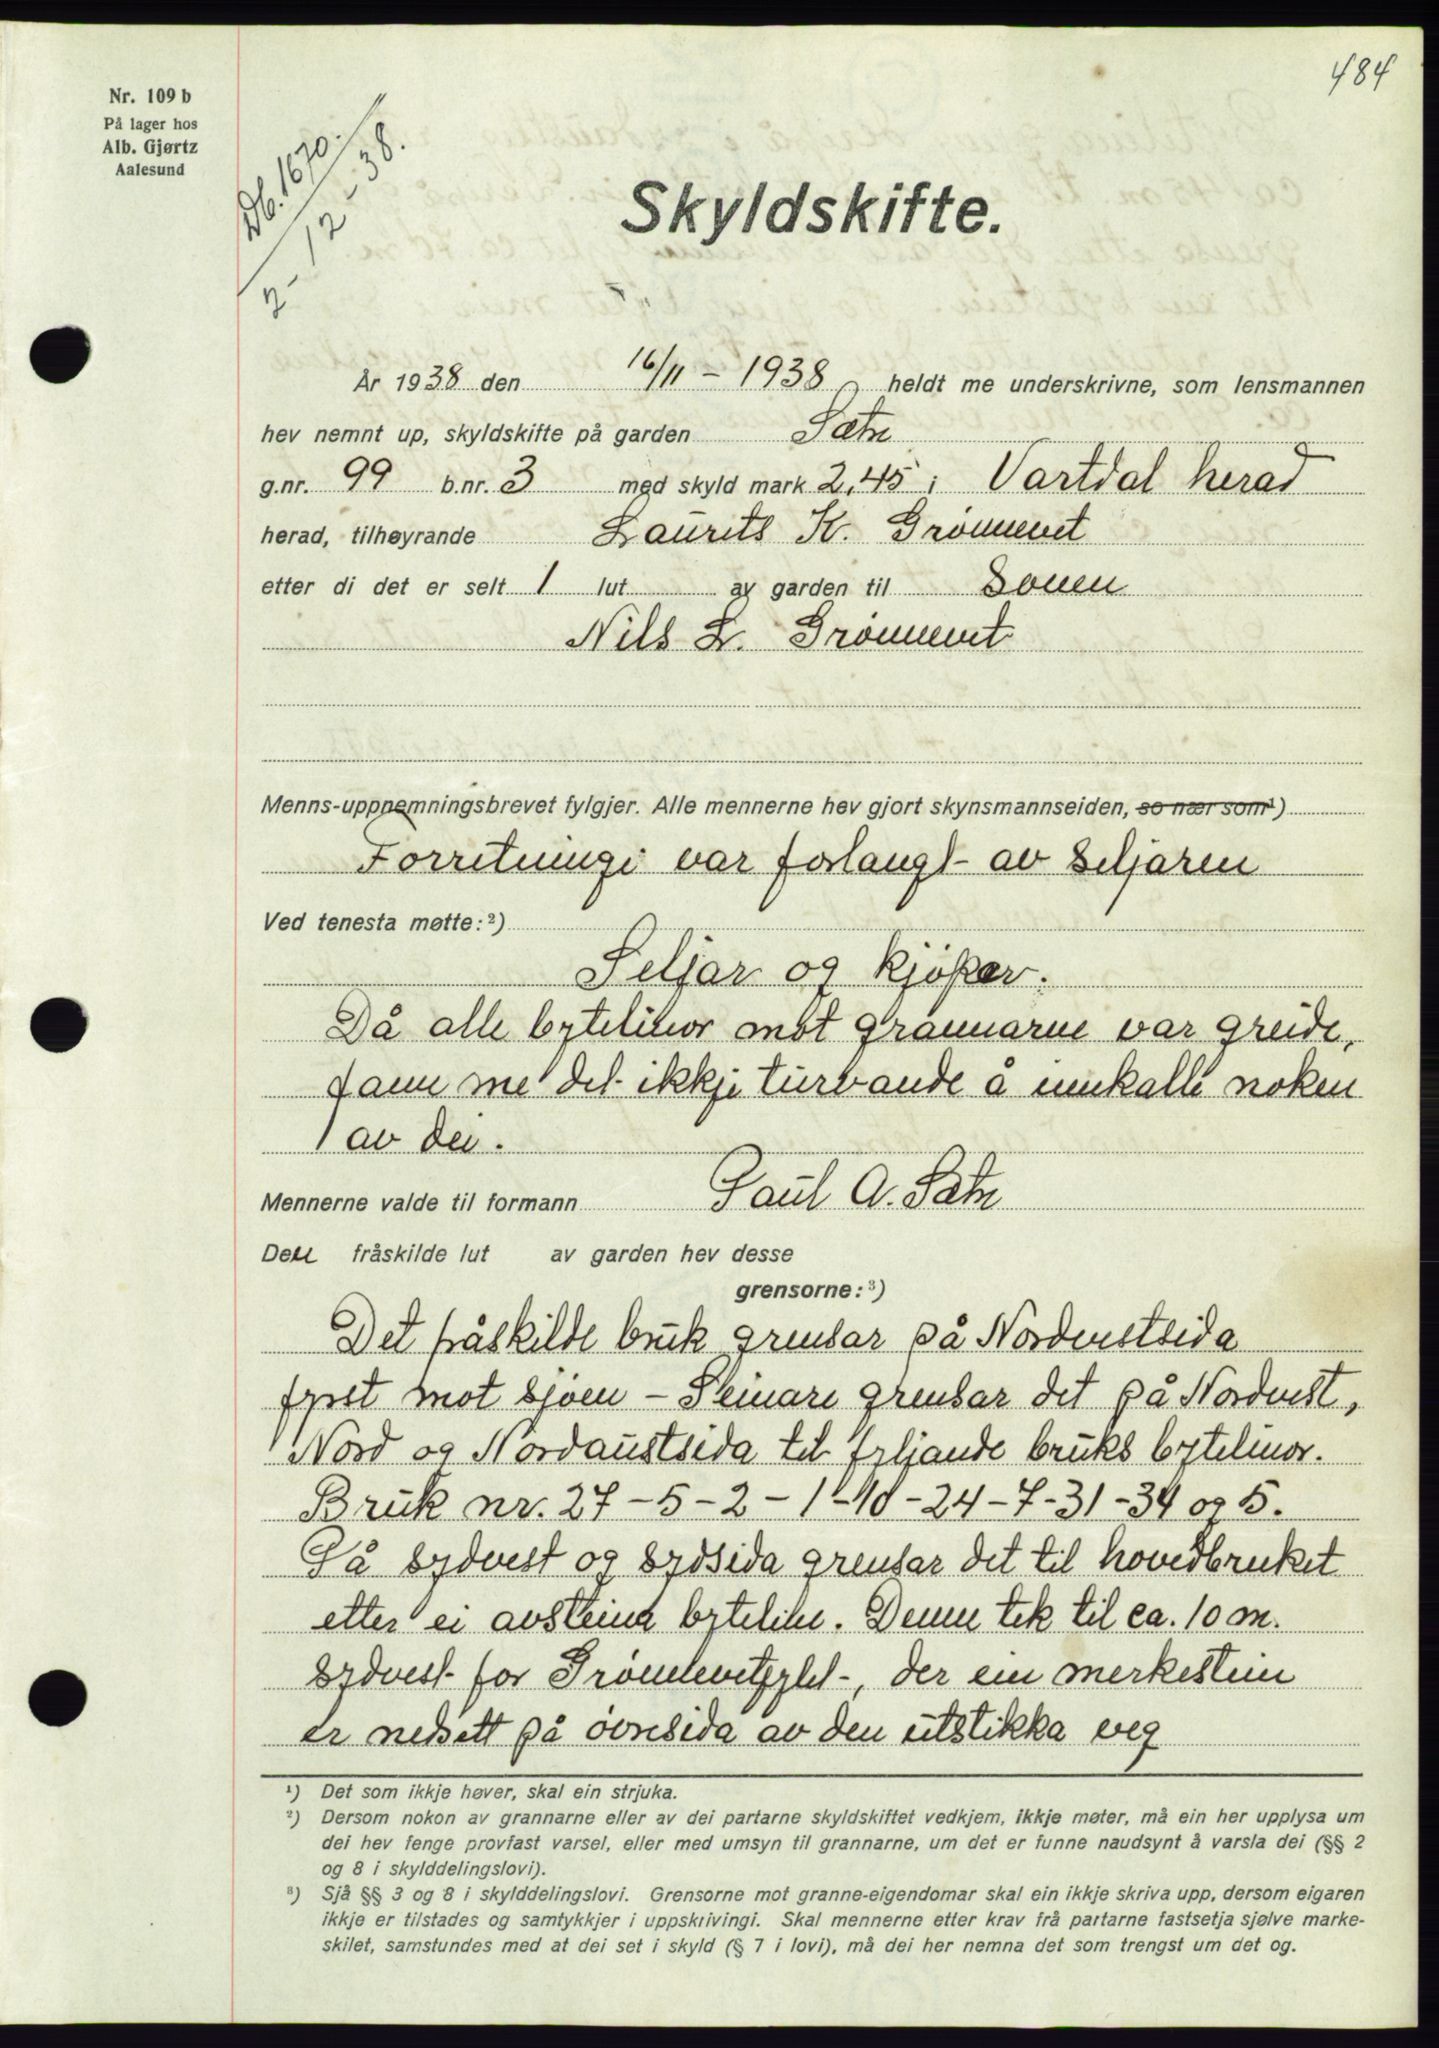 484
Nr. 109 b
På lager hos
Alb. Gjørtz
Aalesund
Db. 1670.
2-12-38.
Skyldskifte.
År 1938 den 16/11 - 1938 heldt me underskrivne, som lensmannen
hev nemnt up, skyldskifte på garden Sætre
g.nr. 99 b.nr. 3 med skyld mark 2,45 i Vartdal herad
herad, tilhøyrande Laurits K. Grönnevet
etter di det er selt 1 lut av garden til sonen
Nils L. Grönnevet
Menns-uppnemningsbrevet fylgjer. Alle mennerne hev gjort skynsmannseiden, so nær som¹)
Forretningi var forlangt av seljaren
Ved tenesta møtte:²)
Seljar og kjöper.
Då alle bytelinor mot grannarne var greide,
fann me det ikkje turvande å innkalle noken
av dei.
Mennerne valde til formann Paul A. Sætre
Den fråskilde lut av garden hev desse
grensorne:³)
Det fråskilde bruk grensar på Nordvestsida
fyrst mot sjöen - Seinare grensar det på Nordvest,
Nord og Nordaustsida til fyljande bruks bytelinor.
Bruk nr. 27-5-2-1-10-24-7-31-34 og 5.
På sydvest og sydsida grensar det til hovedbruket
etter ei avsteina byteline. Denne tek til ca. 10 m.
sydvest for , der ein merkestein
er nedsett på övresida av den utstikka veg
¹) Det som ikkje høver, skal ein strjuka.
²) Dersom nokon av grannarne eller av dei partarne skyldskiftet vedkjem, ikkje møter, må ein her upplysa um
dei hev fenge provfast varsel, eller med umsyn til grannarne, um det er funne naudsynt å varsla dei (§§ 2
og 8 i skylddelingslovi).
³) Sjå §§ 3 og 8 i skylddelingslovi. Grensorne mot granne-eigendomar skal ein ikkje skriva upp, dersom eigaren
ikkje er tilstades og samtykkjer i uppskrivingi. Skal mennerne etter krav frå partarne fastsetja sjølve marke-
skilet, samstundes med at dei set i skyld (§ 7 i lovi), må dei her nemna det som trengst um det og.